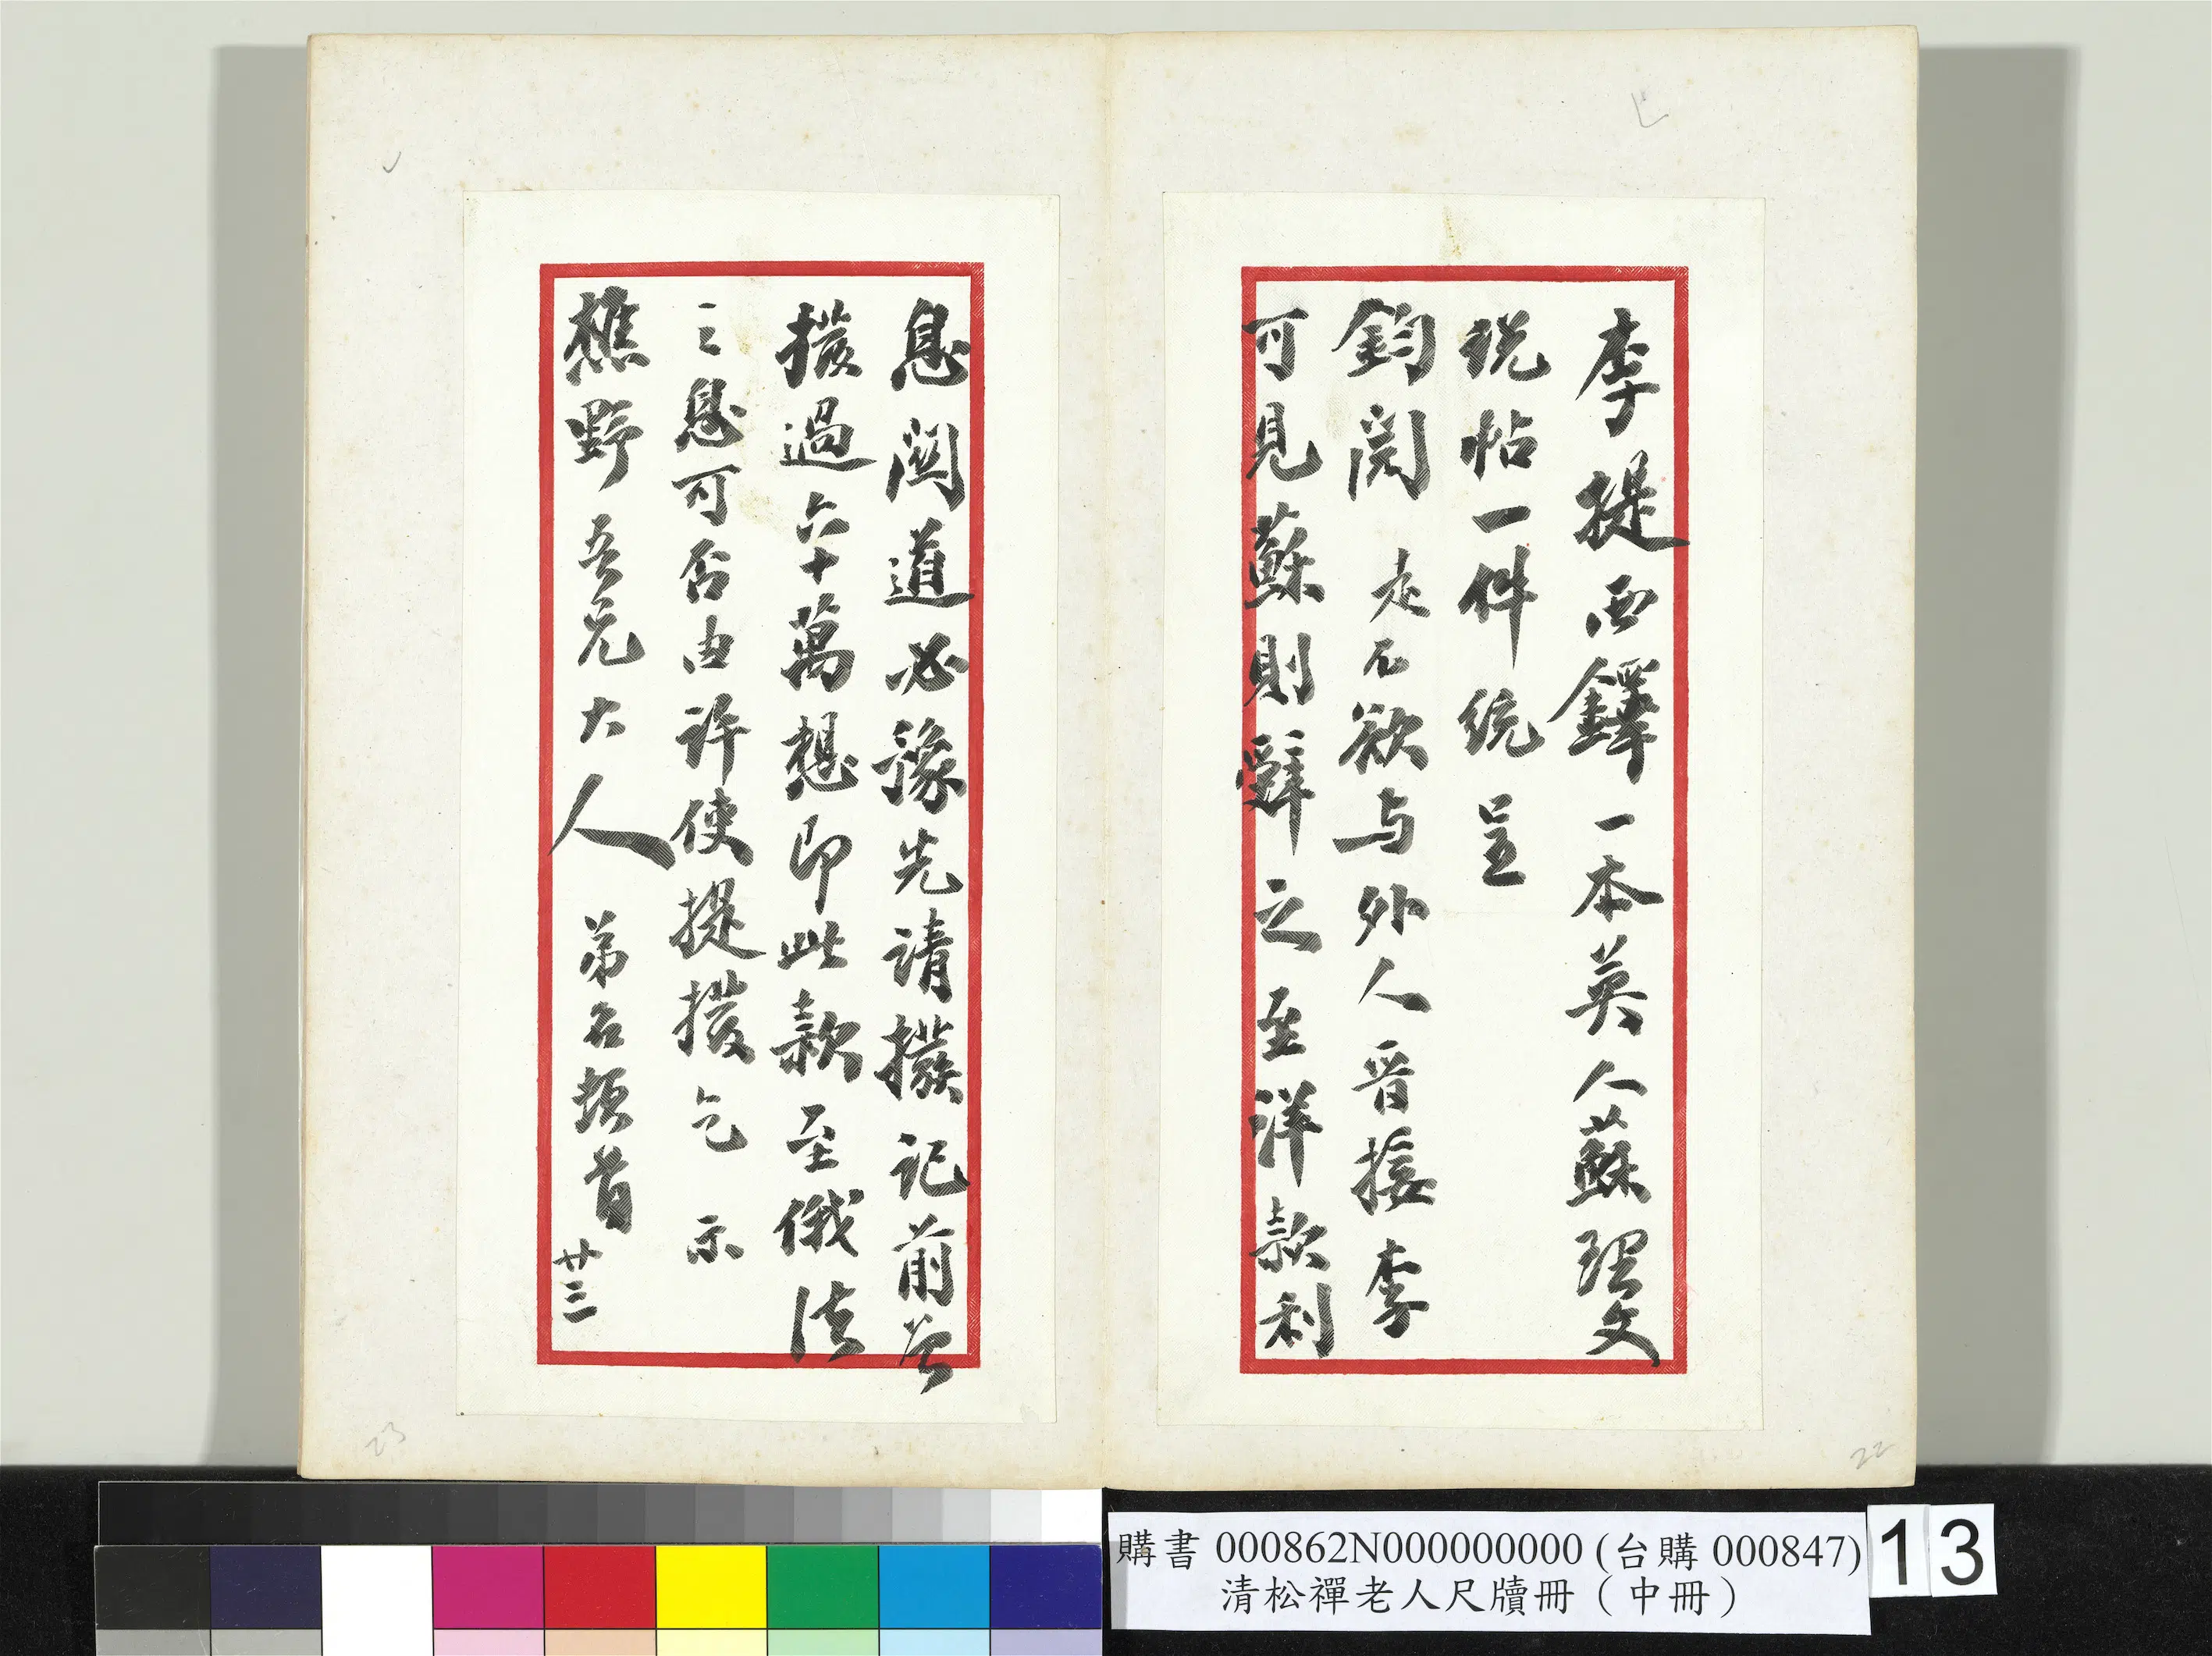 李提西鐸一本英人蘇理文
说帖一件統呈
鈞閱 走不欲与外人晋接李
可見蘇則辭之至洋款利
息閱道必豫先請撥记前曾
撥過六十萬想即此款至俄法
之息可否由许使提撥乞示
樵野吾兄大人 弟名頓首 廿三
22
23
購書 000862N000000000 (台購 000847)
清松禪老人尺牘冊（中冊）
13